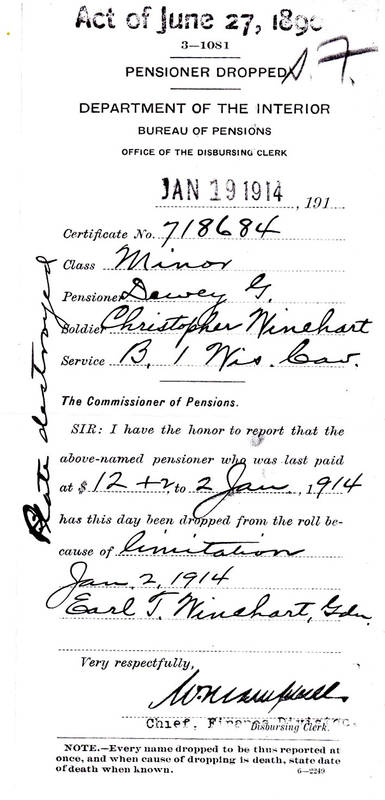 Act of June 27, 1890
3—1081
PENSIONER DROPPED
DEPARTMENT OF THE INTERIOR
BUREAU OF PENSIONS
OFFICE OF THE DISBURSING CLERK
JAN 19 1914, 191
Certificate No. 718684
Class Minor
Pensioner Dewey G.
Soldier Christopher Winehart
Service B, 1 Wis. Cav.
Plate destroyed
The Commissioner of Pensions.
SIR: I have the honor to report that the
above-named pensioner who was last paid
at $ 12 + 2, to 2 Jan., 1914
has this day been dropped from the roll be-
cause of limitation
Jan. 2, 1914
Earl T. Winehart, Gdn.
Very respectfully,
Chief, Finance Division.
Disbursing Clerk.
NOTE.—Every name dropped to be thus reported at
once, and when cause of dropping is death, state date
of death when known. 6—2249